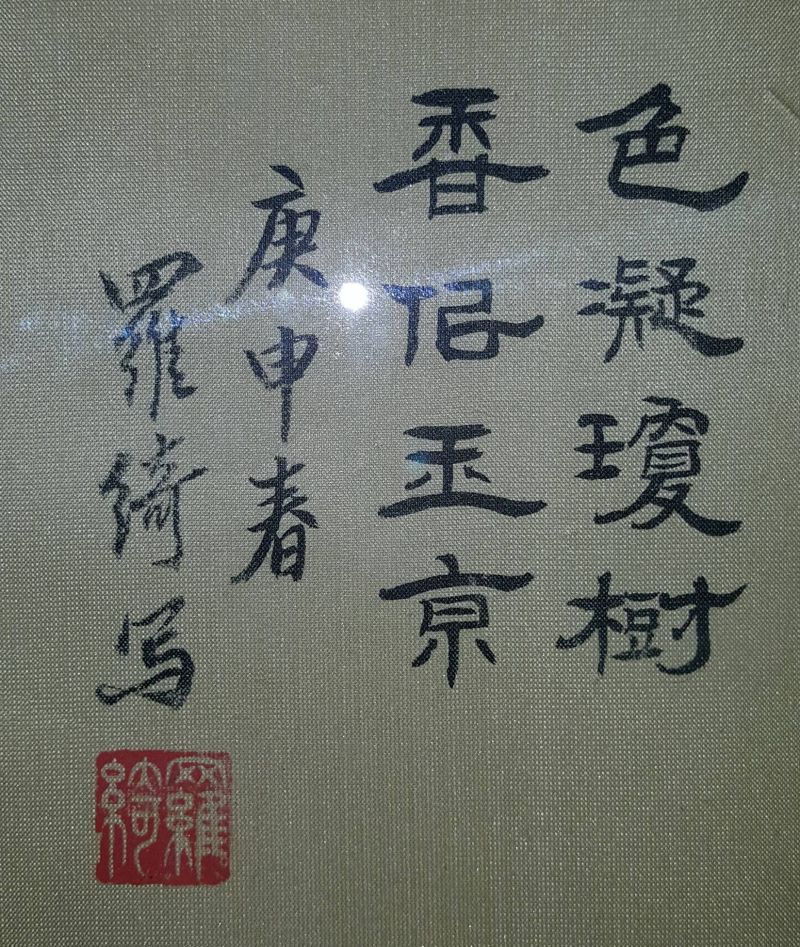 色凝瓊樹
香佀玉亰
庚申春
羅綺写
羅綺